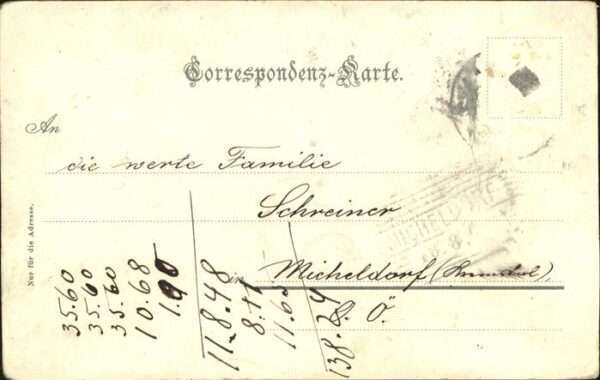 Correspondenz-Karte.
An
die werte Familie
Schreiner
in Micheldorf
O. Ö.
Nur für die Adresse.
MICHELDORF
35.60
35.60
35.60
10.68
1.90
11.8.48
8.11
11.65
138.24